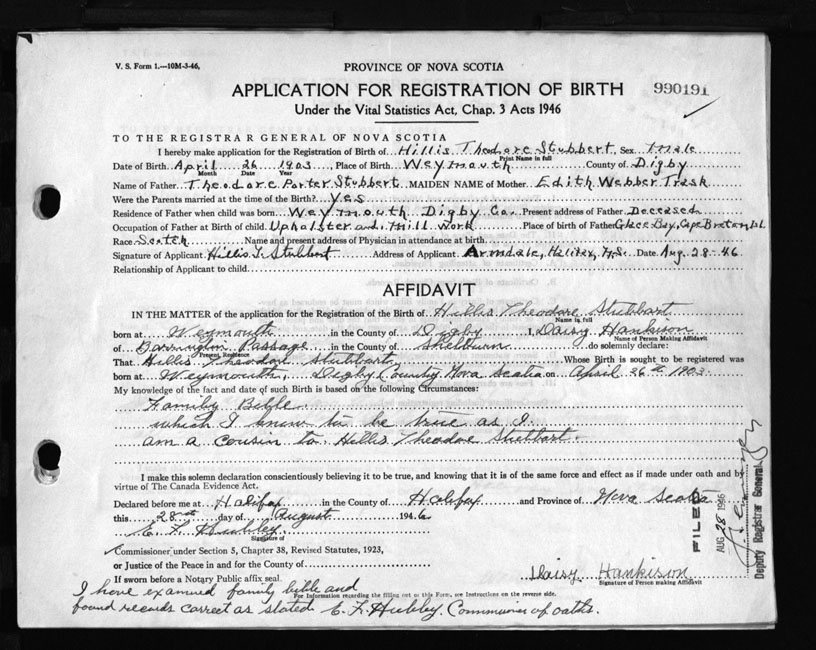 V. S. Form 1.—10M-3-46,
PROVINCE OF NOVA SCOTIA
APPLICATION FOR REGISTRATION OF BIRTH 990191
Under the Vital Statistics Act, Chap. 3 Acts 1946
TO THE REGISTRAR GENERAL OF NOVA SCOTIA
I hereby make application for the Registration of Birth of Hillis Theodore Stubbert Sex Male
Print Name in full
Date of Birth April 26 1903, Place of Birth Weymouth County of Digby
Month Day Year
Name of Father Theodore Porter Stubbert MAIDEN NAME of Mother Edith Webber Trask
Were the Parents married at the time of the Birth? Yes
Residence of Father when child was born Weymouth Digby Co. Present address of Father Deceased
Occupation of Father at Birth of child Upholster and Mill Work Place of birth of Father Glace Bay, Cape Breton Isl.
Race Scotch Name and present address of Physician in attendance at birth
Signature of Applicant Hillis T. Stubbert Address of Applicant Armdale, Halifax, N.S. Date Aug 28-46
Relationship of Applicant to child
AFFIDAVIT
IN THE MATTER of the application for the Registration of Birth of Hillis Theodore Stubbart
Name in full
born at Weymouth in the County of Digby I, Daisy Hankison
Name of Person Making Affidavit
of Barrington Passage in the County of Shelburn do solemnly declare:
Present Residence
That Hillis Theodore Stubbart Whose Birth is sought to be registered was
born at Weymouth, Digby County Nova Scotia on April 26th 1903
My knowledge of the fact and date of such Birth is based on the following Circumstances:
Family Bible
which I know to be true as I
am a cousin to Hillis Theodore Stubbart.
I make this solemn declaration conscientiously believing it to be true, and knowing that it is of the same force and effect as if made under oath and by
virtue of The Canada Evidence Act.
Declared before me at Halifax in the County of Halifax and Province of Nova Scotia
this 28th day of August 1946
E. F. Hubley
Signature of
Commissioner under Section 5, Chapter 38, Revised Statutes, 1923,
or Justice of the Peace in and for the County of
If sworn before a Notary Public affix seal.
Daisy Hankison
Signature of Person making Affidavit
For Information regarding the filling out of this Form, see Instructions on the reverse side.
I have examined family bible and
found records correct as stated E. F. Hubley. Commissioner of oaths.
FILED
AUG 28 1946
Deputy Registrar General